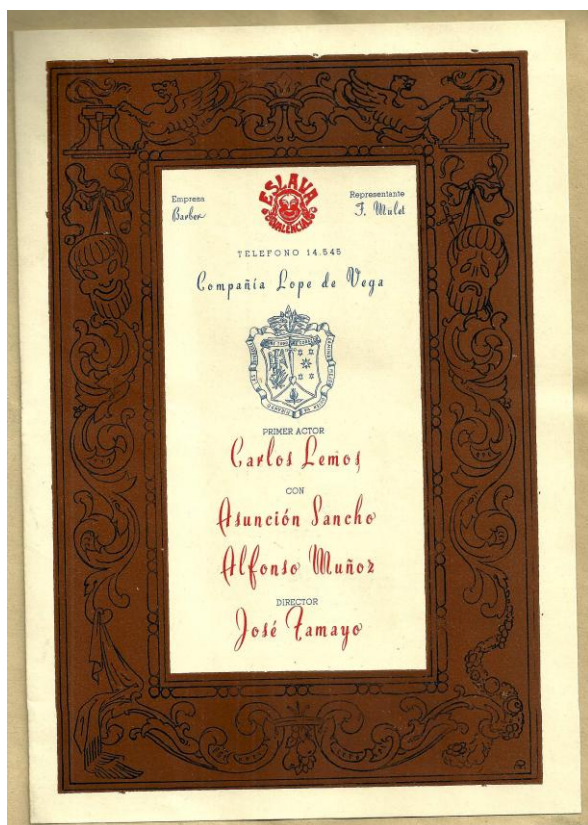 Empresa
Barber
ESLAVA
VALENCIA
Representante
F. Mulet
TELEFONO 14.545
Compañía Lope de Vega
PRIMER ACTOR
Carlos Lemos
CON
Asunción Sancho
Alfonso Muñoz
DIRECTOR
José Tamayo